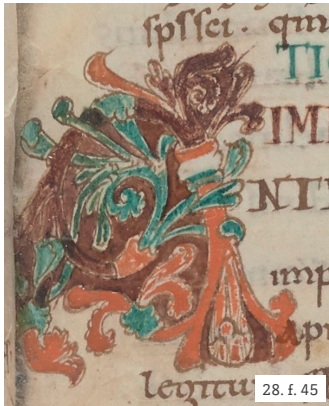 spssci · qui
TI
IM
NTI
imp
apu
legitu
28. f. 45